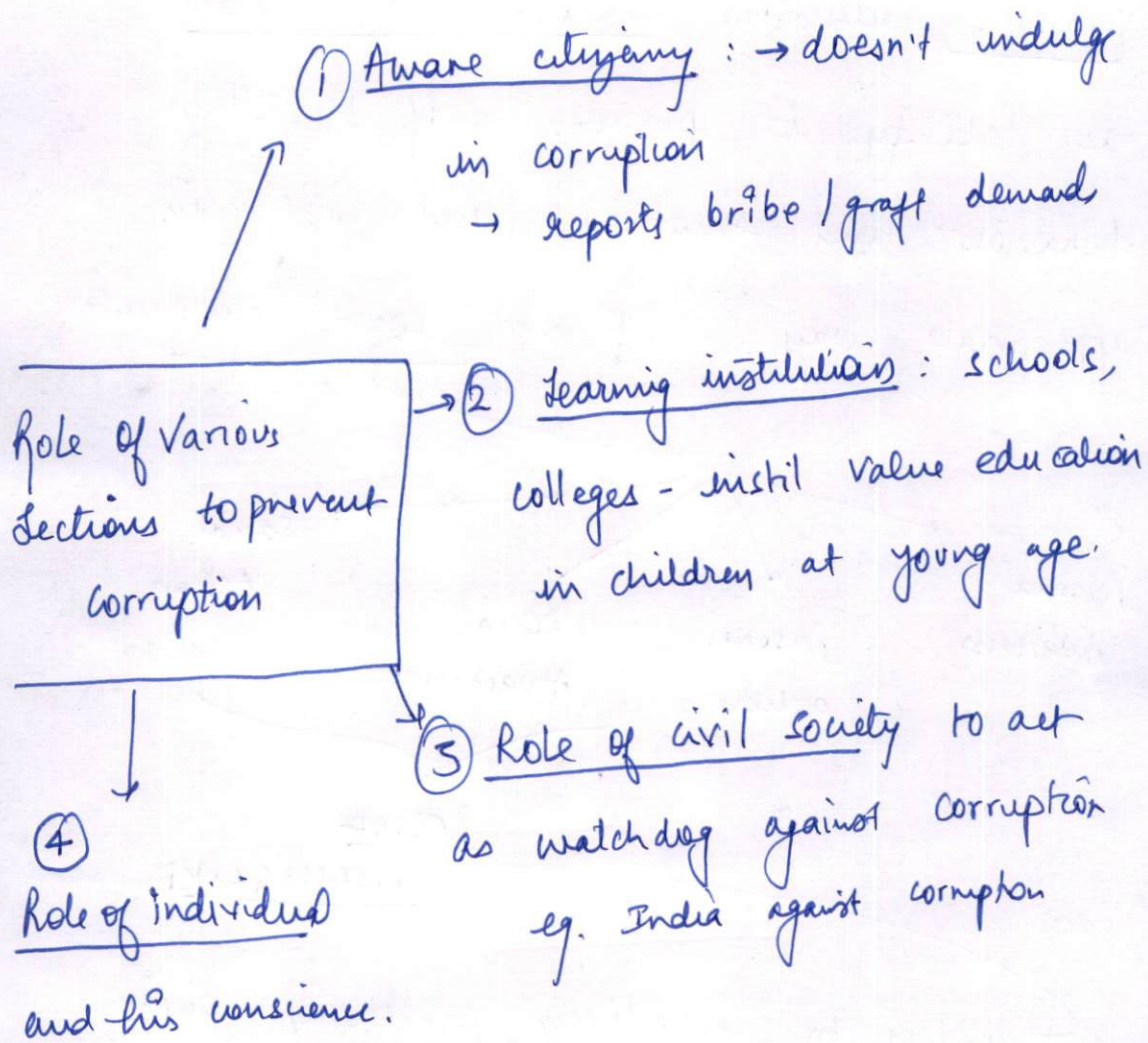 ① Aware citizenry : → doesn't indulge
in corruption
→ reports bribe / graft demands
Role of Various
Sections to prevent
Corruption
→ ② Learning institutions : schools,
colleges - instil value education
in children at young age.
③ Role of civil society to act
as watchdog against corruption
eg. India against corruption
④
Role of individual
and his conscience.